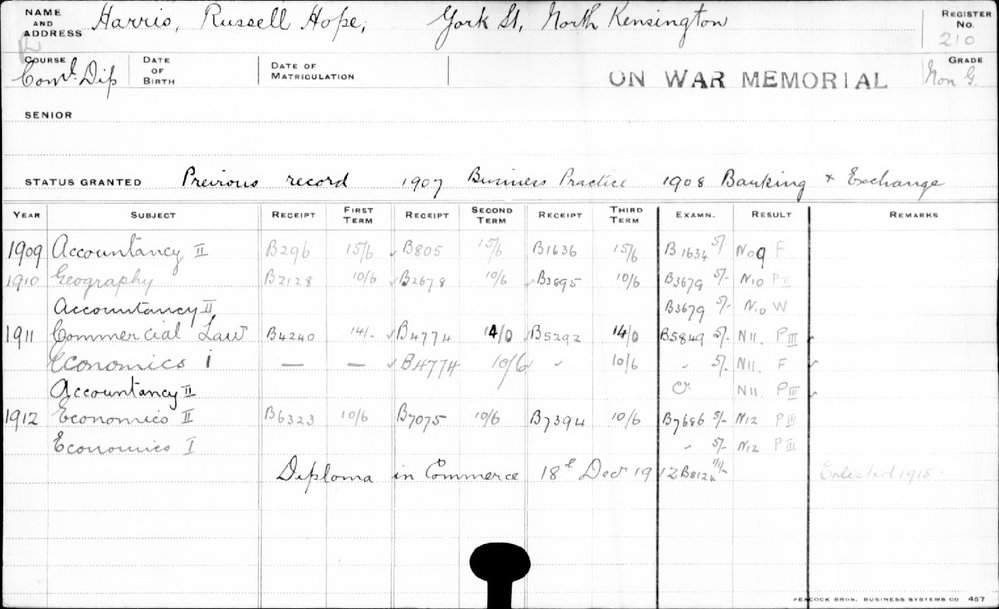 NAME AND ADDRESS Harris, Russell Hope, York St, North Kensington REGISTER No. 210
COURSE Coml. Dip DATE OF BIRTH DATE OF MATRICULATION ON WAR MEMORIAL GRADE Non G.
SENIOR
STATUS GRANTED Previous record 1907 Business Practice 1908 Banking & Exchange
YEAR SUBJECT RECEIPT FIRST TERM RECEIPT SECOND TERM RECEIPT THIRD TERM EXAMN. RESULT REMARKS
1909 Accountancy II B296 15/6 B805 15/6 B1636 15/6 B1634 5/- N09 F
1910 Geography B2128 10/6 B2678 10/6 B3895 10/6 B3679 5/- N10 P II
Accountancy II B3679 5/- N10 W
1911 Commercial Law B4240 14/- B4774 14/0 B5292 14/0 B5849 5/- N11. P III
Economics i — — B4774 10/6 " 10/6 " 5/- N11. F
Accountancy II Cr. N11 P III
1912 Economics II B6323 10/6 B7075 10/6 B7394 10/6 B7686 5/- N12 P III
Economics I " 5/- N12 P III
Diploma in Commerce 18th Decr 1912 B8126 Enlisted 1915.
PEACOCK BROS. BUSINESS SYSTEMS CO 457